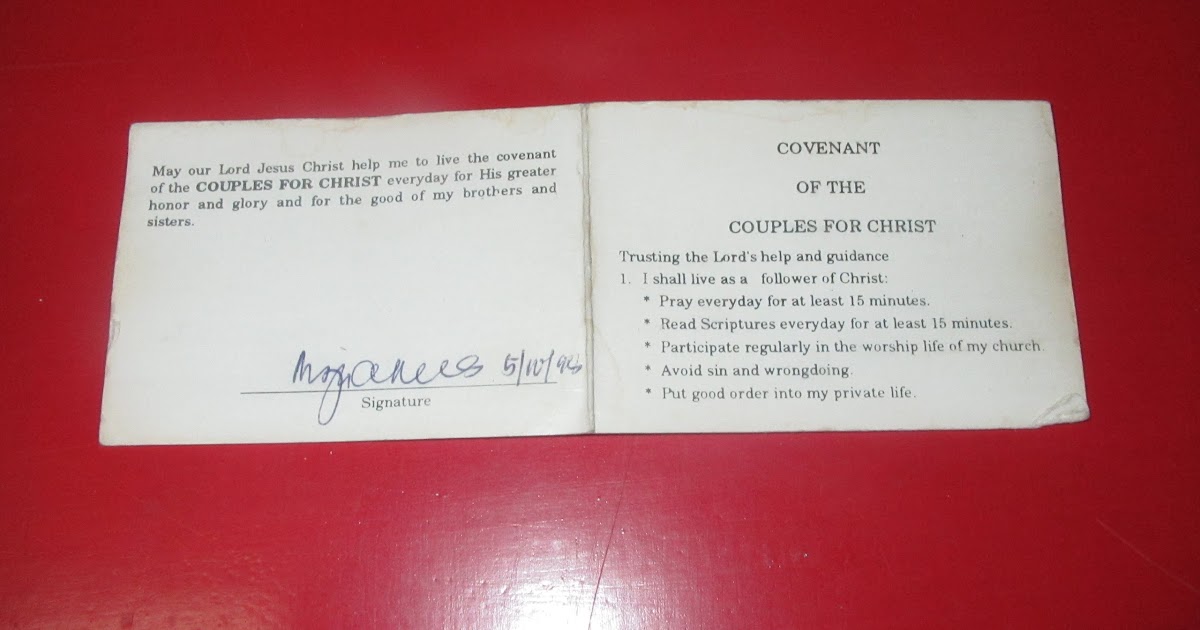 May our Lord Jesus Christ help me to live the covenant
of the COUPLES FOR CHRIST everyday for His greater
honor and glory and for the good of my brothers and
sisters.
5/10/
Signature
COVENANT
OF THE
COUPLES FOR CHRIST
Trusting the Lord's help and guidance
1. I shall live as a follower of Christ:
* Pray everyday for at least 15 minutes.
* Read Scriptures everyday for at least 15 minutes.
* Participate regularly in the worship life of my church.
* Avoid sin and wrongdoing.
* Put good order into my private life.